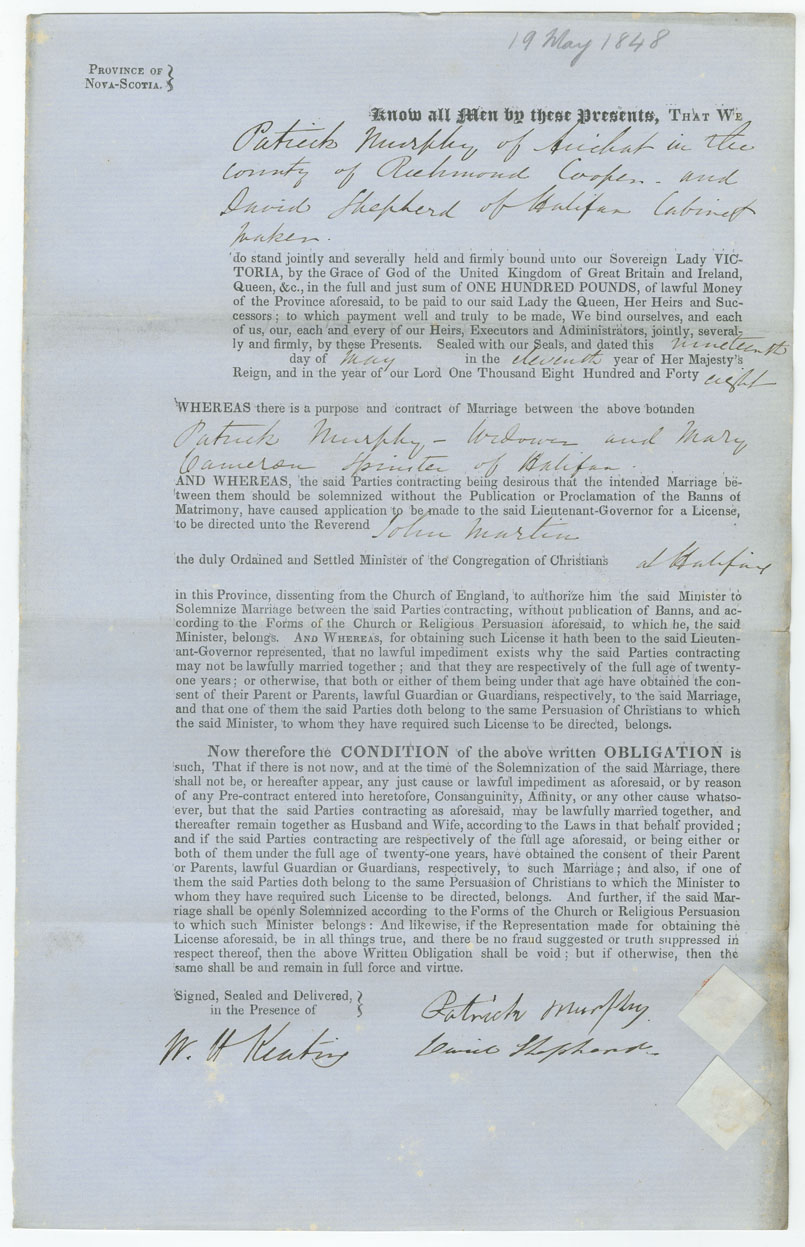 19 May 1848
PROVINCE OF
NOVA-SCOTIA.
Know all Men by these Presents, THAT WE
Patrick Murphy of Arichat in the
County of Richmond Cooper - and
David Shepherd of Halifax Cabinet
maker.
do stand jointly and severally held and firmly bound unto our Sovereign Lady VIC-
TORIA, by the Grace of God of the United Kingdom of Great Britain and Ireland,
Queen, &c., in the full and just sum of ONE HUNDRED POUNDS, of lawful Money
of the Province aforesaid, to be paid to our said Lady the Queen, Her Heirs and Suc-
cessors; to which payment well and truly to be made, We bind ourselves, and each
of us, our, each and every of our Heirs, Executors and Administrators, jointly, several-
ly and firmly, by these Presents. Sealed with our Seals, and dated this nineteenth
day of May in the eleventh year of Her Majesty's
Reign, and in the year of our Lord One Thousand Eight Hundred and Forty eight
WHEREAS there is a purpose and contract of Marriage between the above bounden
Patrick Murphy - Widower and Mary
Cameron Spinster of Halifax.
AND WHEREAS, the said Parties contracting being desirous that the intended Marriage be-
tween them should be solemnized without the Publication or Proclamation of the Banns of
Matrimony, have caused application to be made to the said Lieutenant-Governor for a License,
to be directed unto the Reverend John Martin
the duly Ordained and Settled Minister of the Congregation of Christians at Halifax
in this Province, dissenting from the Church of England, to authorize him the said Minister to
Solemnize Marriage between the said Parties contracting, without publication of Banns, and ac-
cording to the Forms of the Church or Religious Persuasion aforesaid, to which he, the said
Minister, belongs. AND WHEREAS, for obtaining such License it hath been to the said Lieuten-
ant-Governor represented, that no lawful impediment exists why the said Parties contracting
may not be lawfully married together; and that they are respectively of the full age of twenty-
one years; or otherwise, that both or either of them being under that age have obtained the con-
sent of their Parent or Parents, lawful Guardian or Guardians, respectively, to the said Marriage,
and that one of them the said Parties doth belong to the same Persuasion of Christians to which
the said Minister, to whom they have required such License to be directed, belongs.
Now therefore the CONDITION of the above written OBLIGATION is
such, That if there is not now, and at the time of the Solemnization of the said Marriage, there
shall not be, or hereafter appear, any just cause or lawful impediment as aforesaid, or by reason
of any Pre-contract entered into heretofore, Consanguinity, Affinity, or any other cause whatso-
ever, but that the said Parties contracting as aforesaid, may be lawfully married together, and
thereafter remain together as Husband and Wife, according to the Laws in that behalf provided;
and if the said Parties contracting are respectively of the full age aforesaid, or being either or
both of them under the full age of twenty-one years, have obtained the consent of their Parent
or Parents, lawful Guardian or Guardians, respectively, to such Marriage; and also, if one of
them the said Parties doth belong to the same Persuasion of Christians to which the Minister to
whom they have required such License to be directed, belongs. And further, if the said Mar-
riage shall be openly Solemnized according to the Forms of the Church or Religious Persuasion
to which such Minister belongs: And likewise, if the Representation made for obtaining the
License aforesaid, be in all things true, and there be no fraud suggested or truth suppressed in
respect thereof, then the above Written Obligation shall be void; but if otherwise, then the
same shall be and remain in full force and virtue.
Signed, Sealed and Delivered,
in the Presence of
Patrick Murphy
W. H Keating
David Shepherd